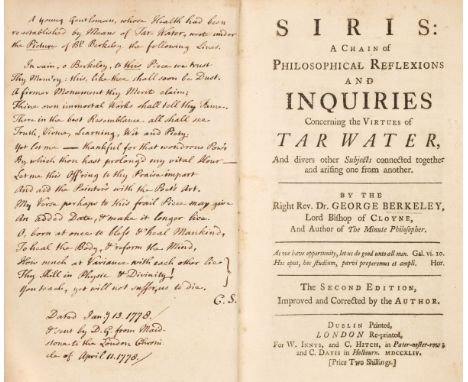 A young Gentleman, whose Health had been
re-established by Means of Tar Water, wrote under
the Picture of Bp. Berkeley the following Lines.
In vain, o Berkeley, to this Piece we trust
Thy Memory: this, like thee shall soon be Dust.
A firmer Monument thy Merit claim;
Thine own immortal Works shall tell thy Fame.
There in the best Resemblance all shall see
Truth, Virtue, Learning, Wit and Piety.
Yet let me — thankful for that wondrous Pow'r
By which thou hast prolong'd my vital Hour —
Let me this Off'ring to thy Praise impart
And aid the Painter's with the Poet's Art.
My Verse perhaps to this frail Piece may give
An added Date, & make it longer live.
O, born at once to bless & heal Mankind,
To heal the Body, & reform the Mind,
How much at Variance with each other lie
Thy Skill in Physic & Divinity!
You teach, yet will not suffer, us to die.
C. S.
Dated Jany. 13. 1778.
& sent by D. G. from Maid-
stone to the London Chroni-
cle of April 11. 1778.
SIRIS:
A CHAIN OF
PHILOSOPHICAL REFLEXIONS
AND
INQUIRIES
Concerning the VIRTUES of
TAR WATER,
And divers other Subjects connected together
and arising one from another.
BY THE
Right Rev. Dr. GEORGE BERKELEY,
Lord Bishop of CLOYNE,
And Author of The Minute Philosopher.
As we have opportunity, let us do good unto all men. Gal. vi. 10.
Hoc opus, hoc studium, parvi properemus et ampli. Hor.
THE SECOND EDITION,
Improved and Corrected by the AUTHOR.
DUBLIN Printed,
LONDON Re-printed,
For W. INNYS, and C. HITCH, in Pater-noster-row;
and C. DAVIS in Holbourn. MDCCXLIV.
[Price Two Shillings.]